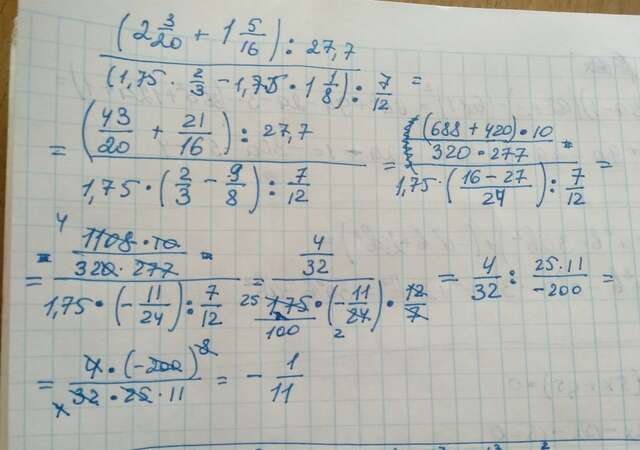 (2 3/20 + 1 5/16) : 27,7
(1,75 · 2/3 - 1,75 · 1 1/8) : 7/12 =
= (43/20 + 21/16) : 27,7
1,75 · (2/3 - 9/8) : 7/12
= (688 + 420) · 10
320 · 277
1,75 · (16 - 27 / 24) : 7/12 =
= 4 1108 · 10
320 · 277
1,75 · (- 11/24) : 7/12
= 4/32
25 1,75/100 · (- 11/24 2) · 12/7
= 4/32 : 25 · 11/-200 =
= 4 · (-200) 8 / 32 · 25 · 11 = - 1/11